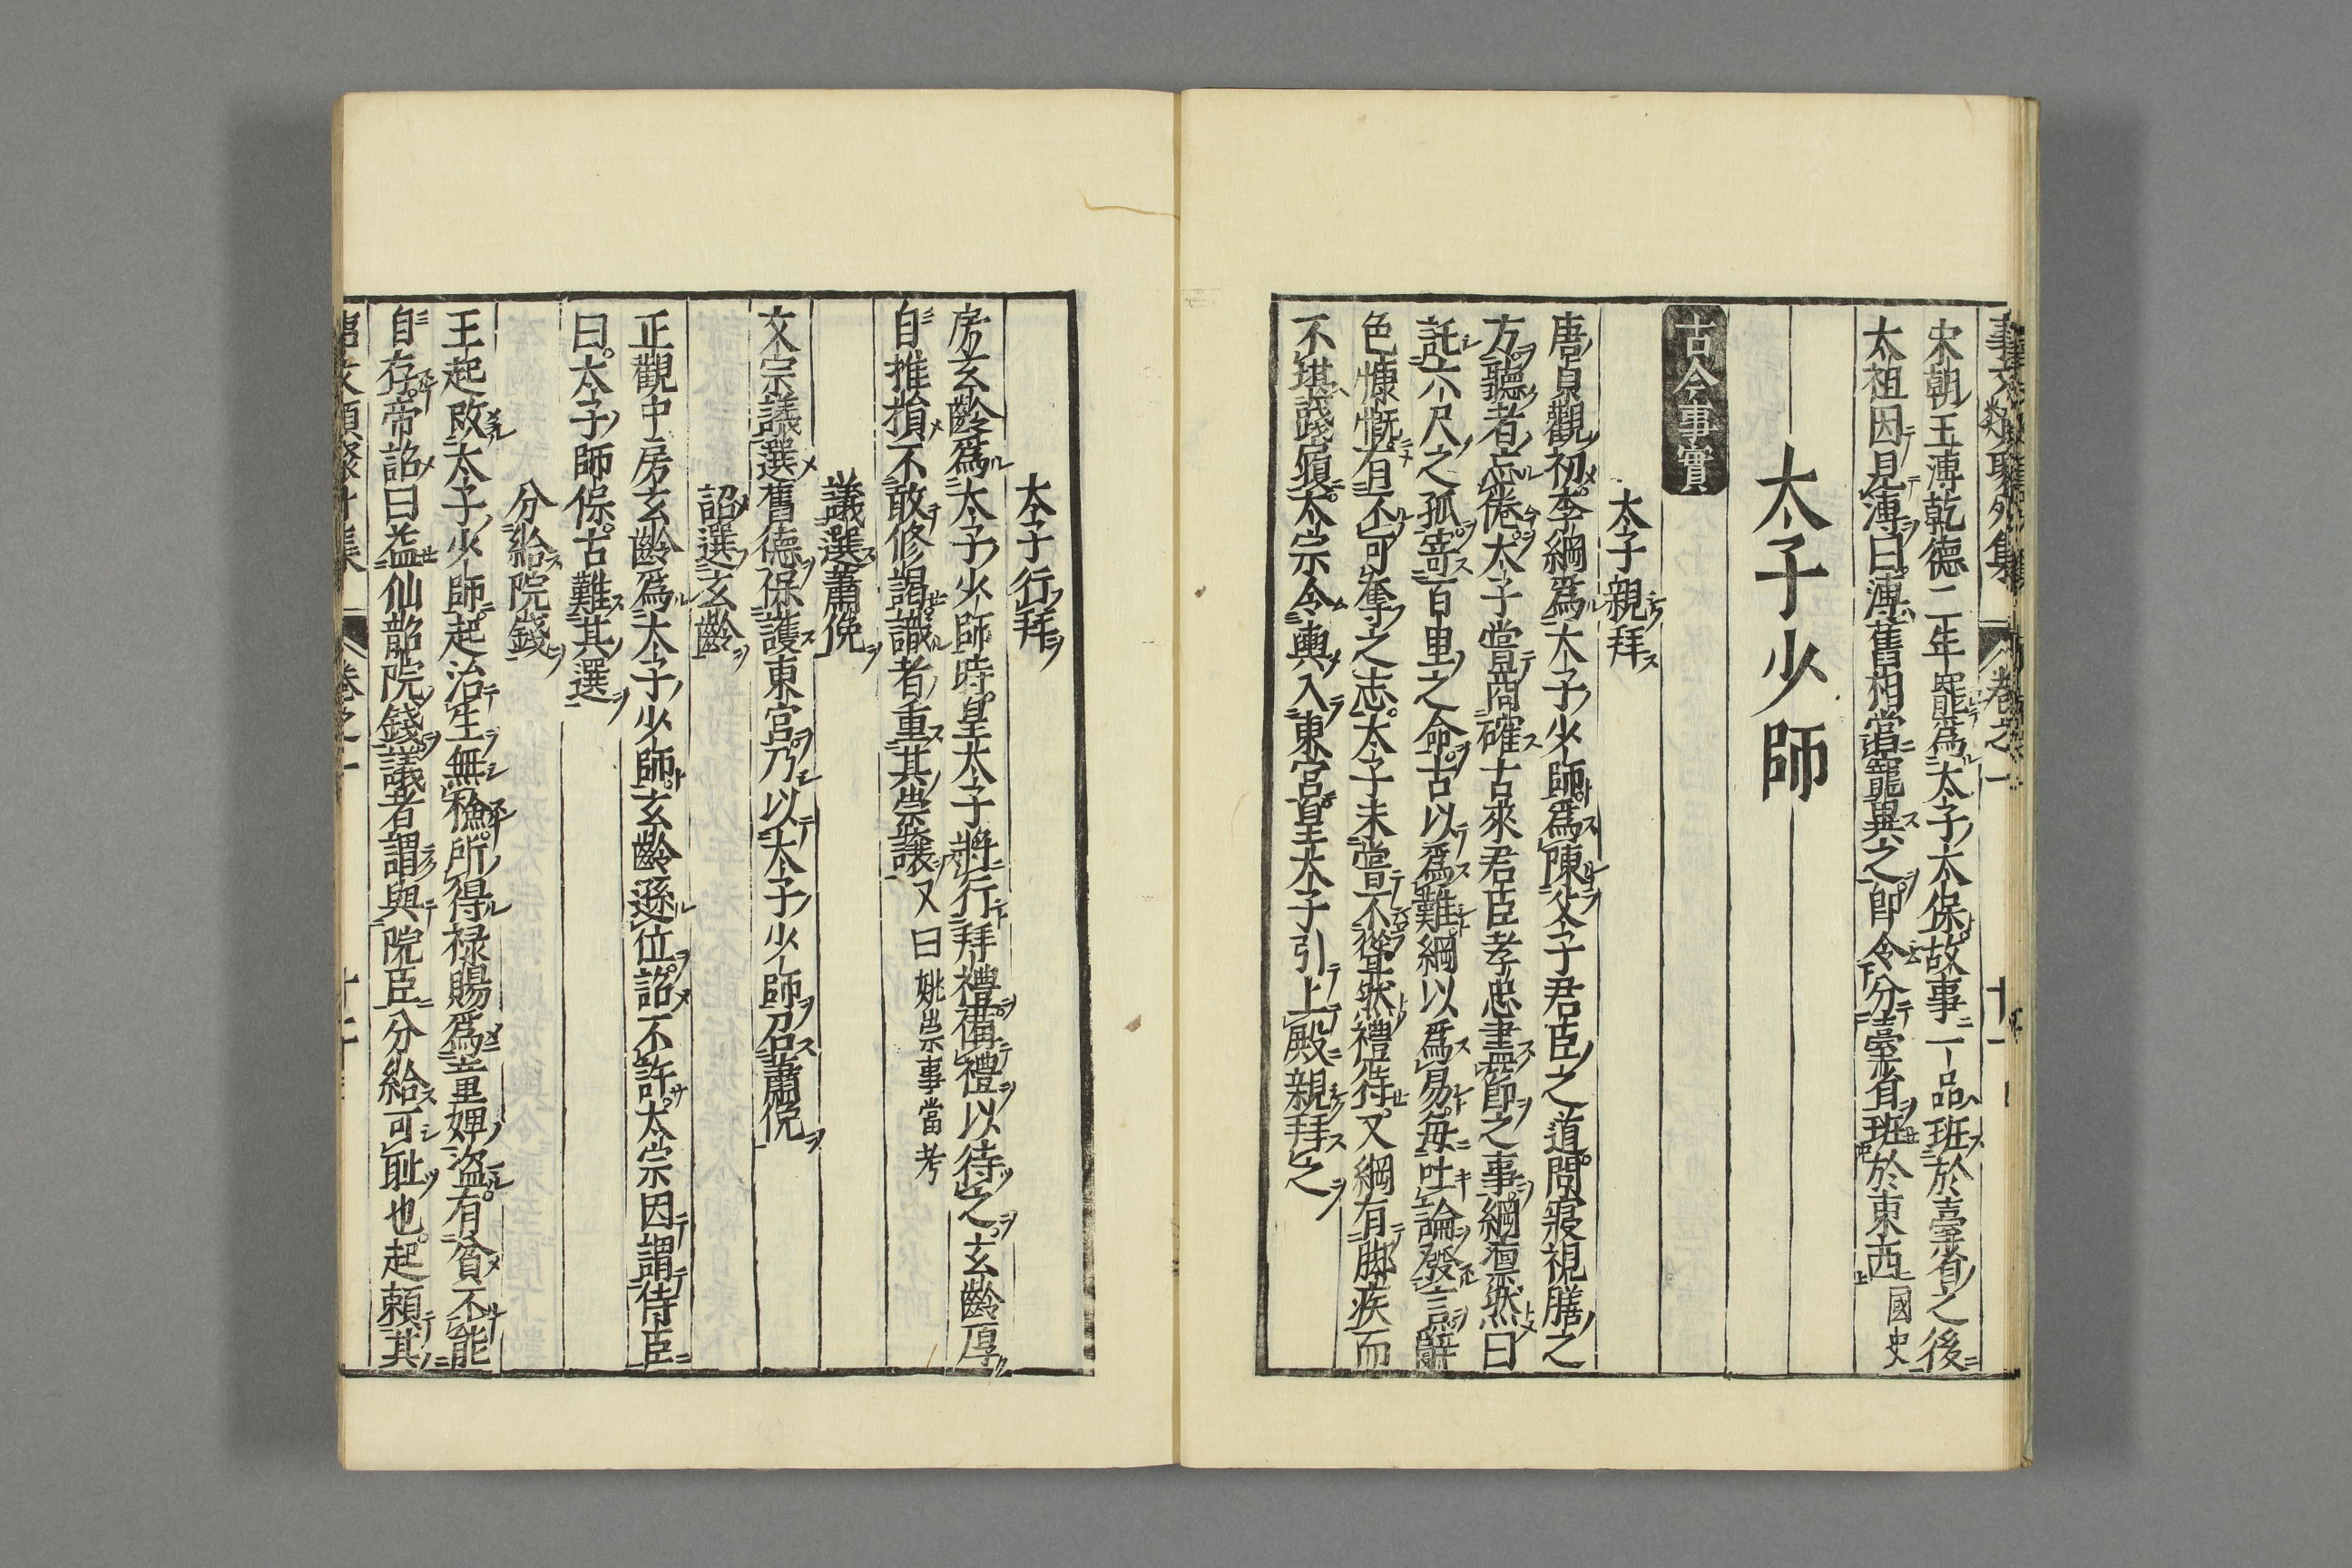 事文類聚外集 卷之一 十一
宋朝王溥乾德二年罷爲太子太保故事一品班於臺省之後
太祖因見溥曰溥舊相當寵異之即令分臺省班於東西國史
太子少師
古今事實
太子親拜
唐貞觀初李綱爲太子少師爲陳父子君臣之道問寢視膳之
方聽者忘倦太子嘗商確古來君臣孝忠盡節之事綱凛然曰
託六尺之孤寄百里之命古以爲難綱以爲易每吐論發言辭
色慷慨有不可奪之志太子未嘗不聳然禮待又綱有脚疾而
不堪踐履太宗令輿入東宮皇太子引上殿親拜之
太子行拜
房玄齡爲太子少師時皇太子將行拜禮備禮以待之玄齡厚
自推損不敢修謁識者重其崇讓又曰姚崇事當考
議選蕭俛
文宗議選舊德保護東宮乃以太子少師召蕭俛
詔選玄齡
正觀中房玄齡爲太子少師玄齡遜位詔不許太宗因謂侍臣
曰太子師保古難其選
分給院錢
王起敀太子少師起治生無檢所得祿賜爲童婢盜有貧不能
自存帝詔曰益仙韶院錢議者謂與院臣分給可耻也起賴其